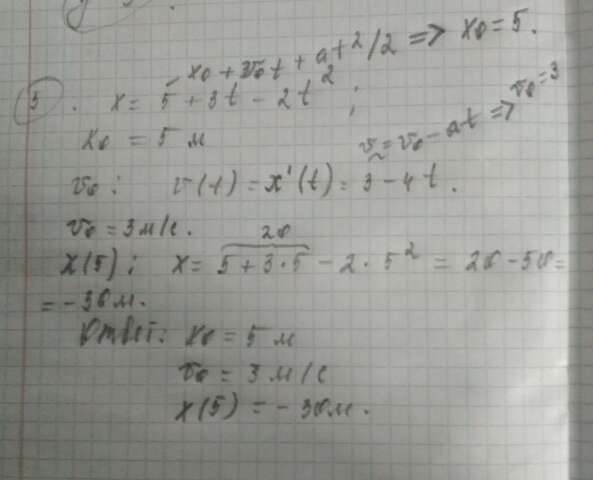 x₀ + v₀t + at²/2 => x₀ = 5.
3. x = 5 + 3t - 2t² ;
x₀ = 5 м
v = v₀ - at => v₀ = 3
v₀ : v(t) = x'(t) = 3 - 4t.
v₀ = 3 м/с.
20
x(5) : x = 5 + 3·5 - 2·5² = 20 - 50 =
= -30 м.
Ответ: x₀ = 5 м
v₀ = 3 м/с
x(5) = -30 м.